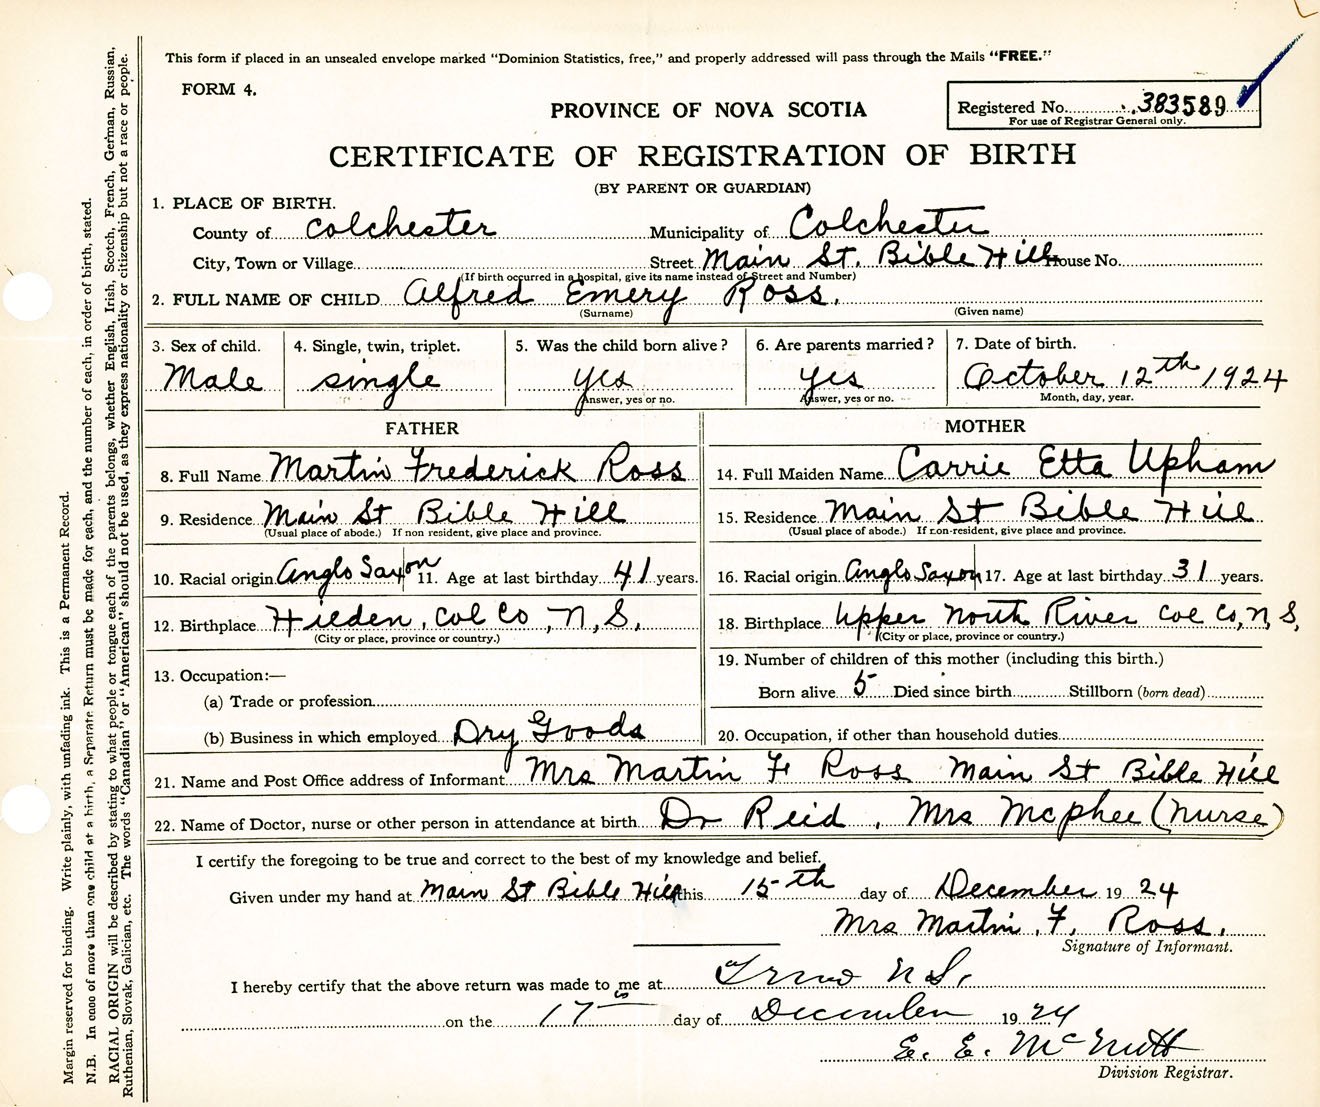 This form if placed in an unsealed envelope marked "Dominion Statistics, free," and properly addressed will pass through the Mails "FREE."
FORM 4.
PROVINCE OF NOVA SCOTIA
Registered No. 383589
For use of Registrar General only.
CERTIFICATE OF REGISTRATION OF BIRTH
(BY PARENT OR GUARDIAN)
1. PLACE OF BIRTH.
County of Colchester Municipality of Colchester
City, Town or Village Street Main St. Bible Hill House No.
(If birth occurred in a hospital, give its name instead of Street and Number)
2. FULL NAME OF CHILD Alfred Emery Ross.
(Surname) (Given name)
3. Sex of child. 4. Single, twin, triplet. 5. Was the child born alive? 6. Are parents married? 7. Date of birth.
Male single yes yes October 12th 1924
Answer, yes or no. Answer, yes or no. Month, day, year.
FATHER MOTHER
8. Full Name Martin Frederick Ross 14. Full Maiden Name Carrie Etta Upham
9. Residence Main St Bible Hill 15. Residence Main St Bible Hill
(Usual place of abode.) If non resident, give place and province. (Usual place of abode.) If non-resident, give place and province.
10. Racial origin Anglo Saxon 11. Age at last birthday 41 years. 16. Racial origin Anglo Saxon 17. Age at last birthday 31 years.
12. Birthplace Hilden, Col Co, N, S, 18. Birthplace Upper North River Col Co, N, S,
(City or place, province or country.) (City or place, province or country.)
13. Occupation:—
19. Number of children of this mother (including this birth.)
(a) Trade or profession
Born alive 5 Died since birth Stillborn (born dead)
(b) Business in which employed Dry Goods 20. Occupation, if other than household duties
21. Name and Post Office address of Informant Mrs Martin F Ross Main St Bible Hill
22. Name of Doctor, nurse or other person in attendance at birth Dr Reid, Mrs McPhee (Nurse)
I certify the foregoing to be true and correct to the best of my knowledge and belief.
Given under my hand at Main St Bible Hill this 15th day of December 1924
Mrs Martin. F. Ross.
Signature of Informant.
I hereby certify that the above return was made to me at Truro N.S.
on the 17th day of December 1924
E. E. McNutt
Division Registrar.
Margin reserved for binding. Write plainly, with unfading ink. This is a Permanent Record.
N.B. In case of more than one child at a birth, a Separate Return must be made for each, and the number of each, in order of birth, stated.
RACIAL ORIGIN will be described by stating to what people or tongue each of the parents belongs, whether English, Irish, Scotch, French, German, Russian,
Ruthenian, Slovak, Galician, etc. The words "Canadian" or "American" should not be used, as they express nationality or citizenship but not a race or people.